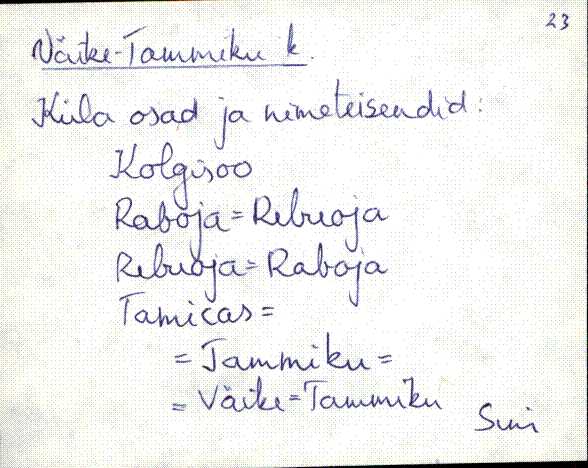 23
Väike-Tammiku k.
Küla osad ja nimeteisendid:
Kolgisoo
Raboja = Rebuoja
Rebuoja = Raboja
Tamicas =
= Tammiku =
= Väike-Tammiku